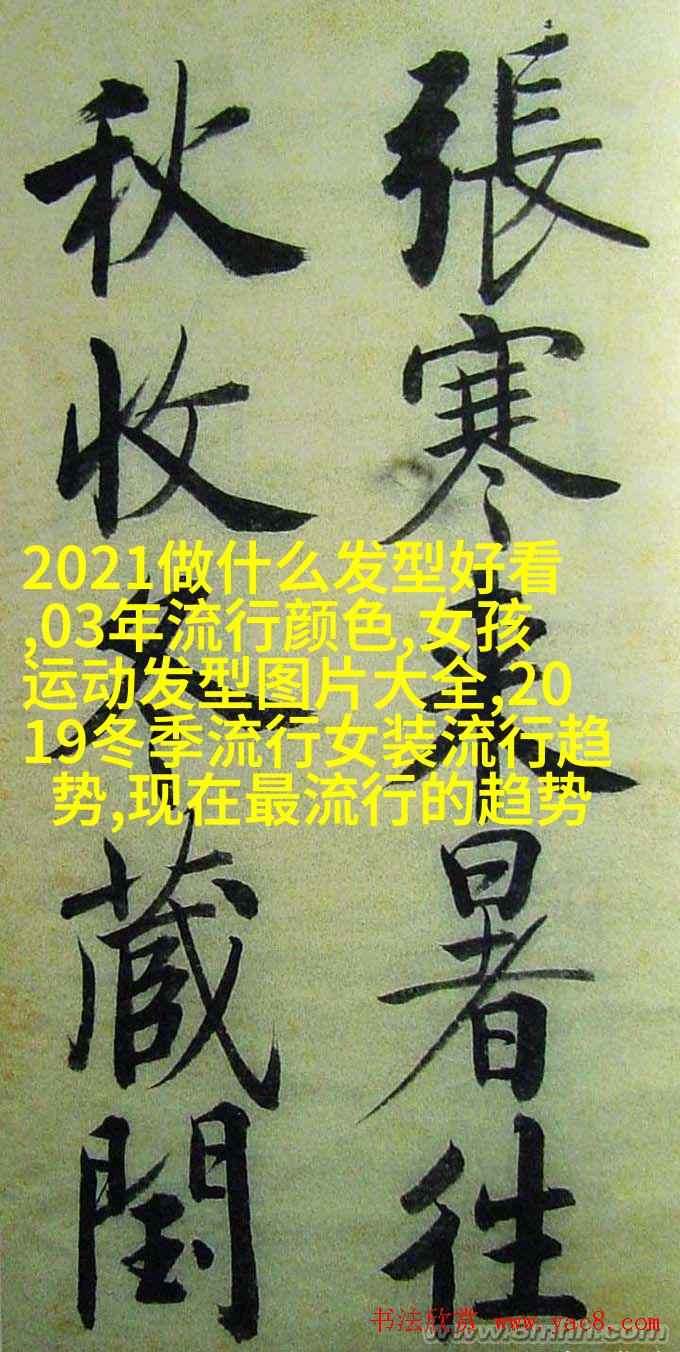 張寒来暑往
秋收冬藏閏
2021做什么发型好看
,03年流行颜色,女孩
运动发型图片大全,20
19冬季流行女装流行趋
势,现在最流行的趋势
书法欣赏 www.yac8.com